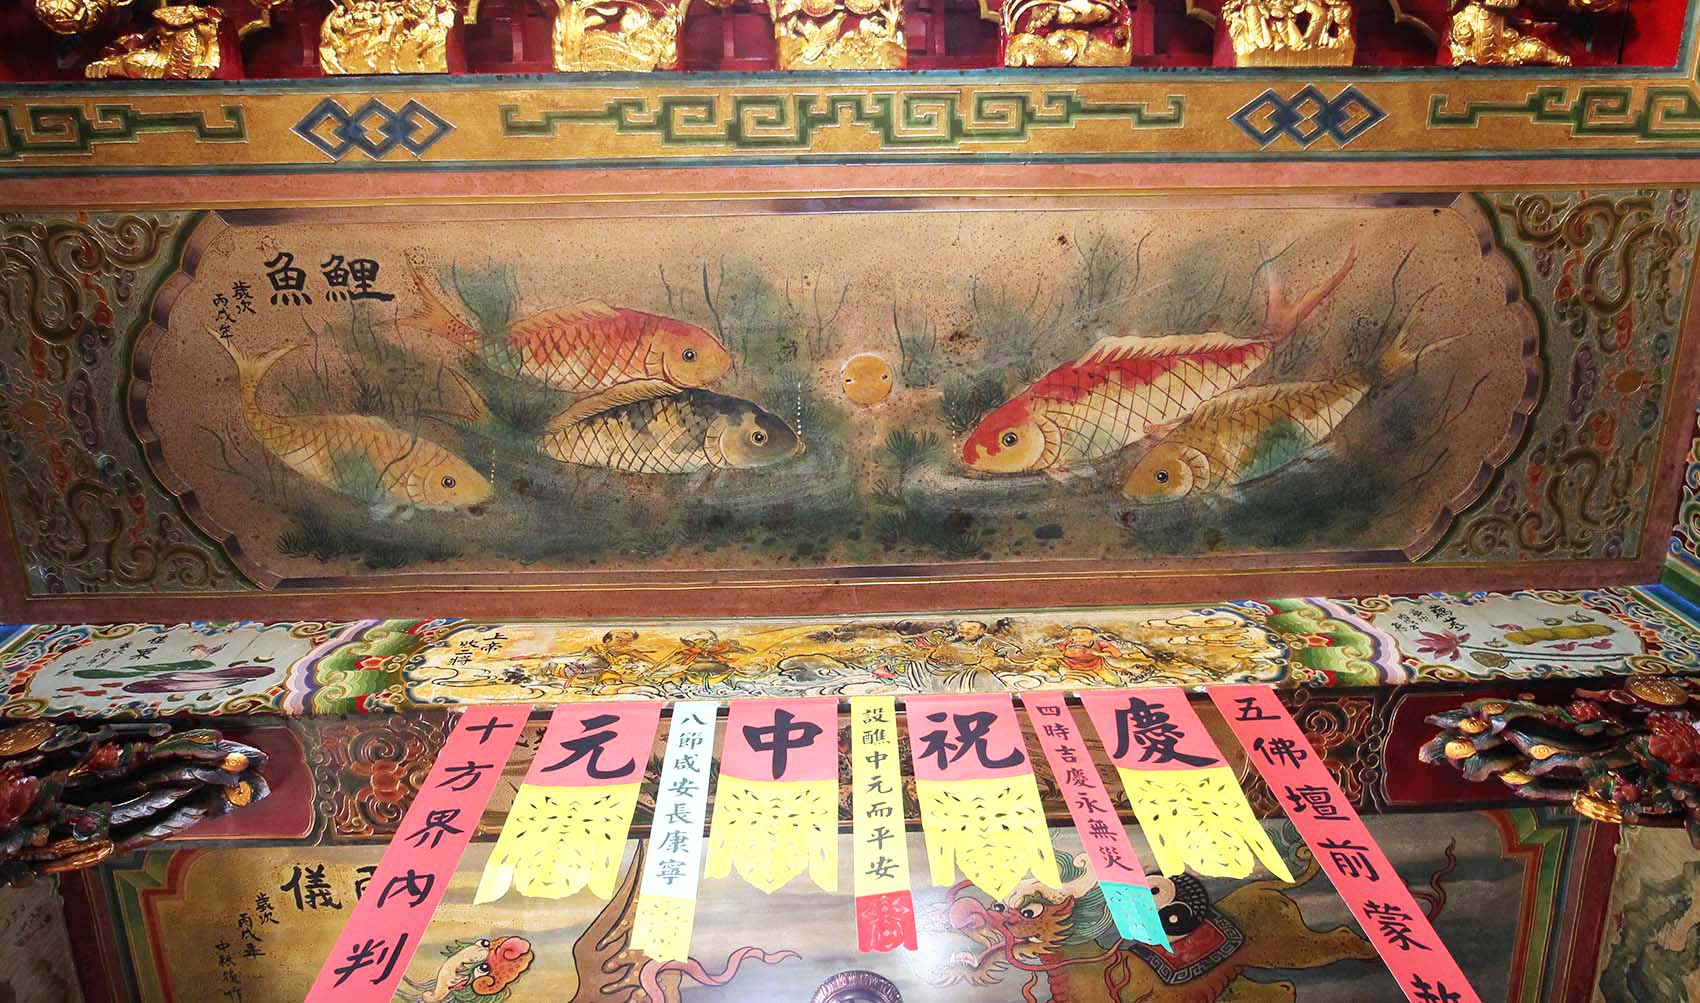 鯉魚
歲次
丙戌年
上帝
收二將
五佛壇前蒙赦
慶祝中元
四時吉慶永無災
設醮中元而平安
八節咸安長康寧
十方界內判
儀
歲次
丙戌年